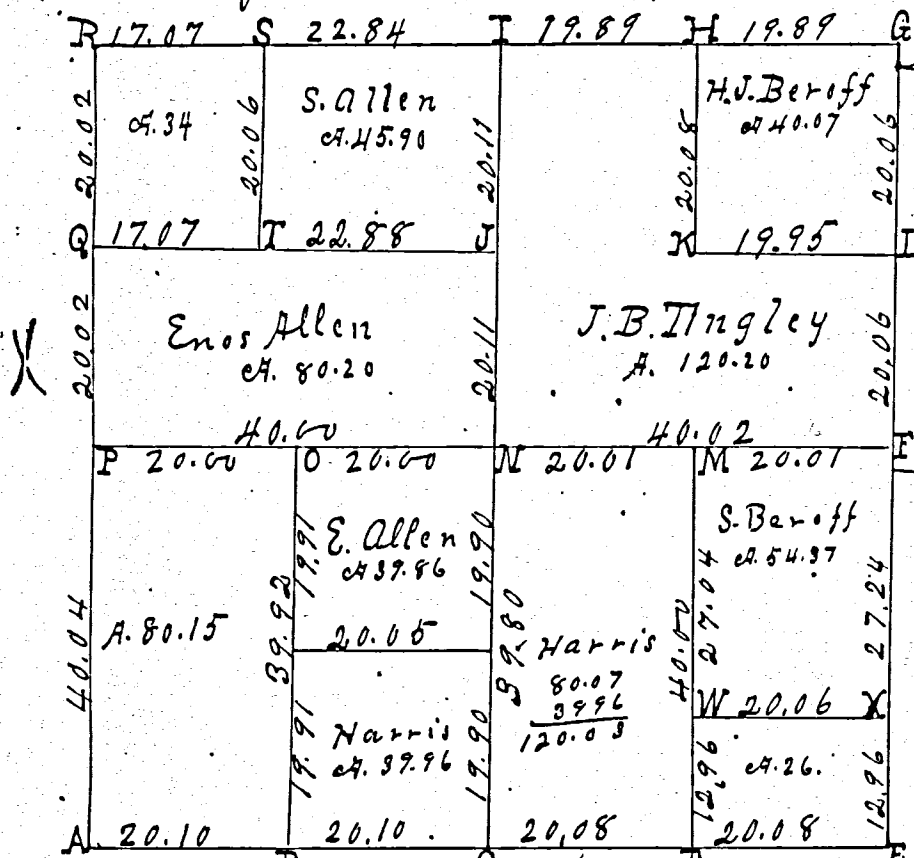 R 17.07 S 22.84 I 19.89 H 19.89 G
20.02
A.34
20.06
S. Allen
A.45.90
20.11
20.08
H.J. Beroff
A 40.07
20.06
Q 17.07 T 22.88 J
K 19.95 I
X
20.02
Enos Allen
A. 80.20
20.11
J.B. Tingley
A. 120.20
20.06
40.00
40.02
P 20.00 O 20.00 N 20.01 M 20.01 F
40.04
A. 80.15
39.92
19.91
E. Allen
A 39.86
19.90
20.05
19.91
Harris
A. 39.96
19.90
39.80
Harris
80.07
3996
120.03
40.00
27.04
S. Beroff
A. 54.37
27.24
W 20.06 X
12,96
A.26.
12.96
A 20.10 20.10 20,08 20.08 E